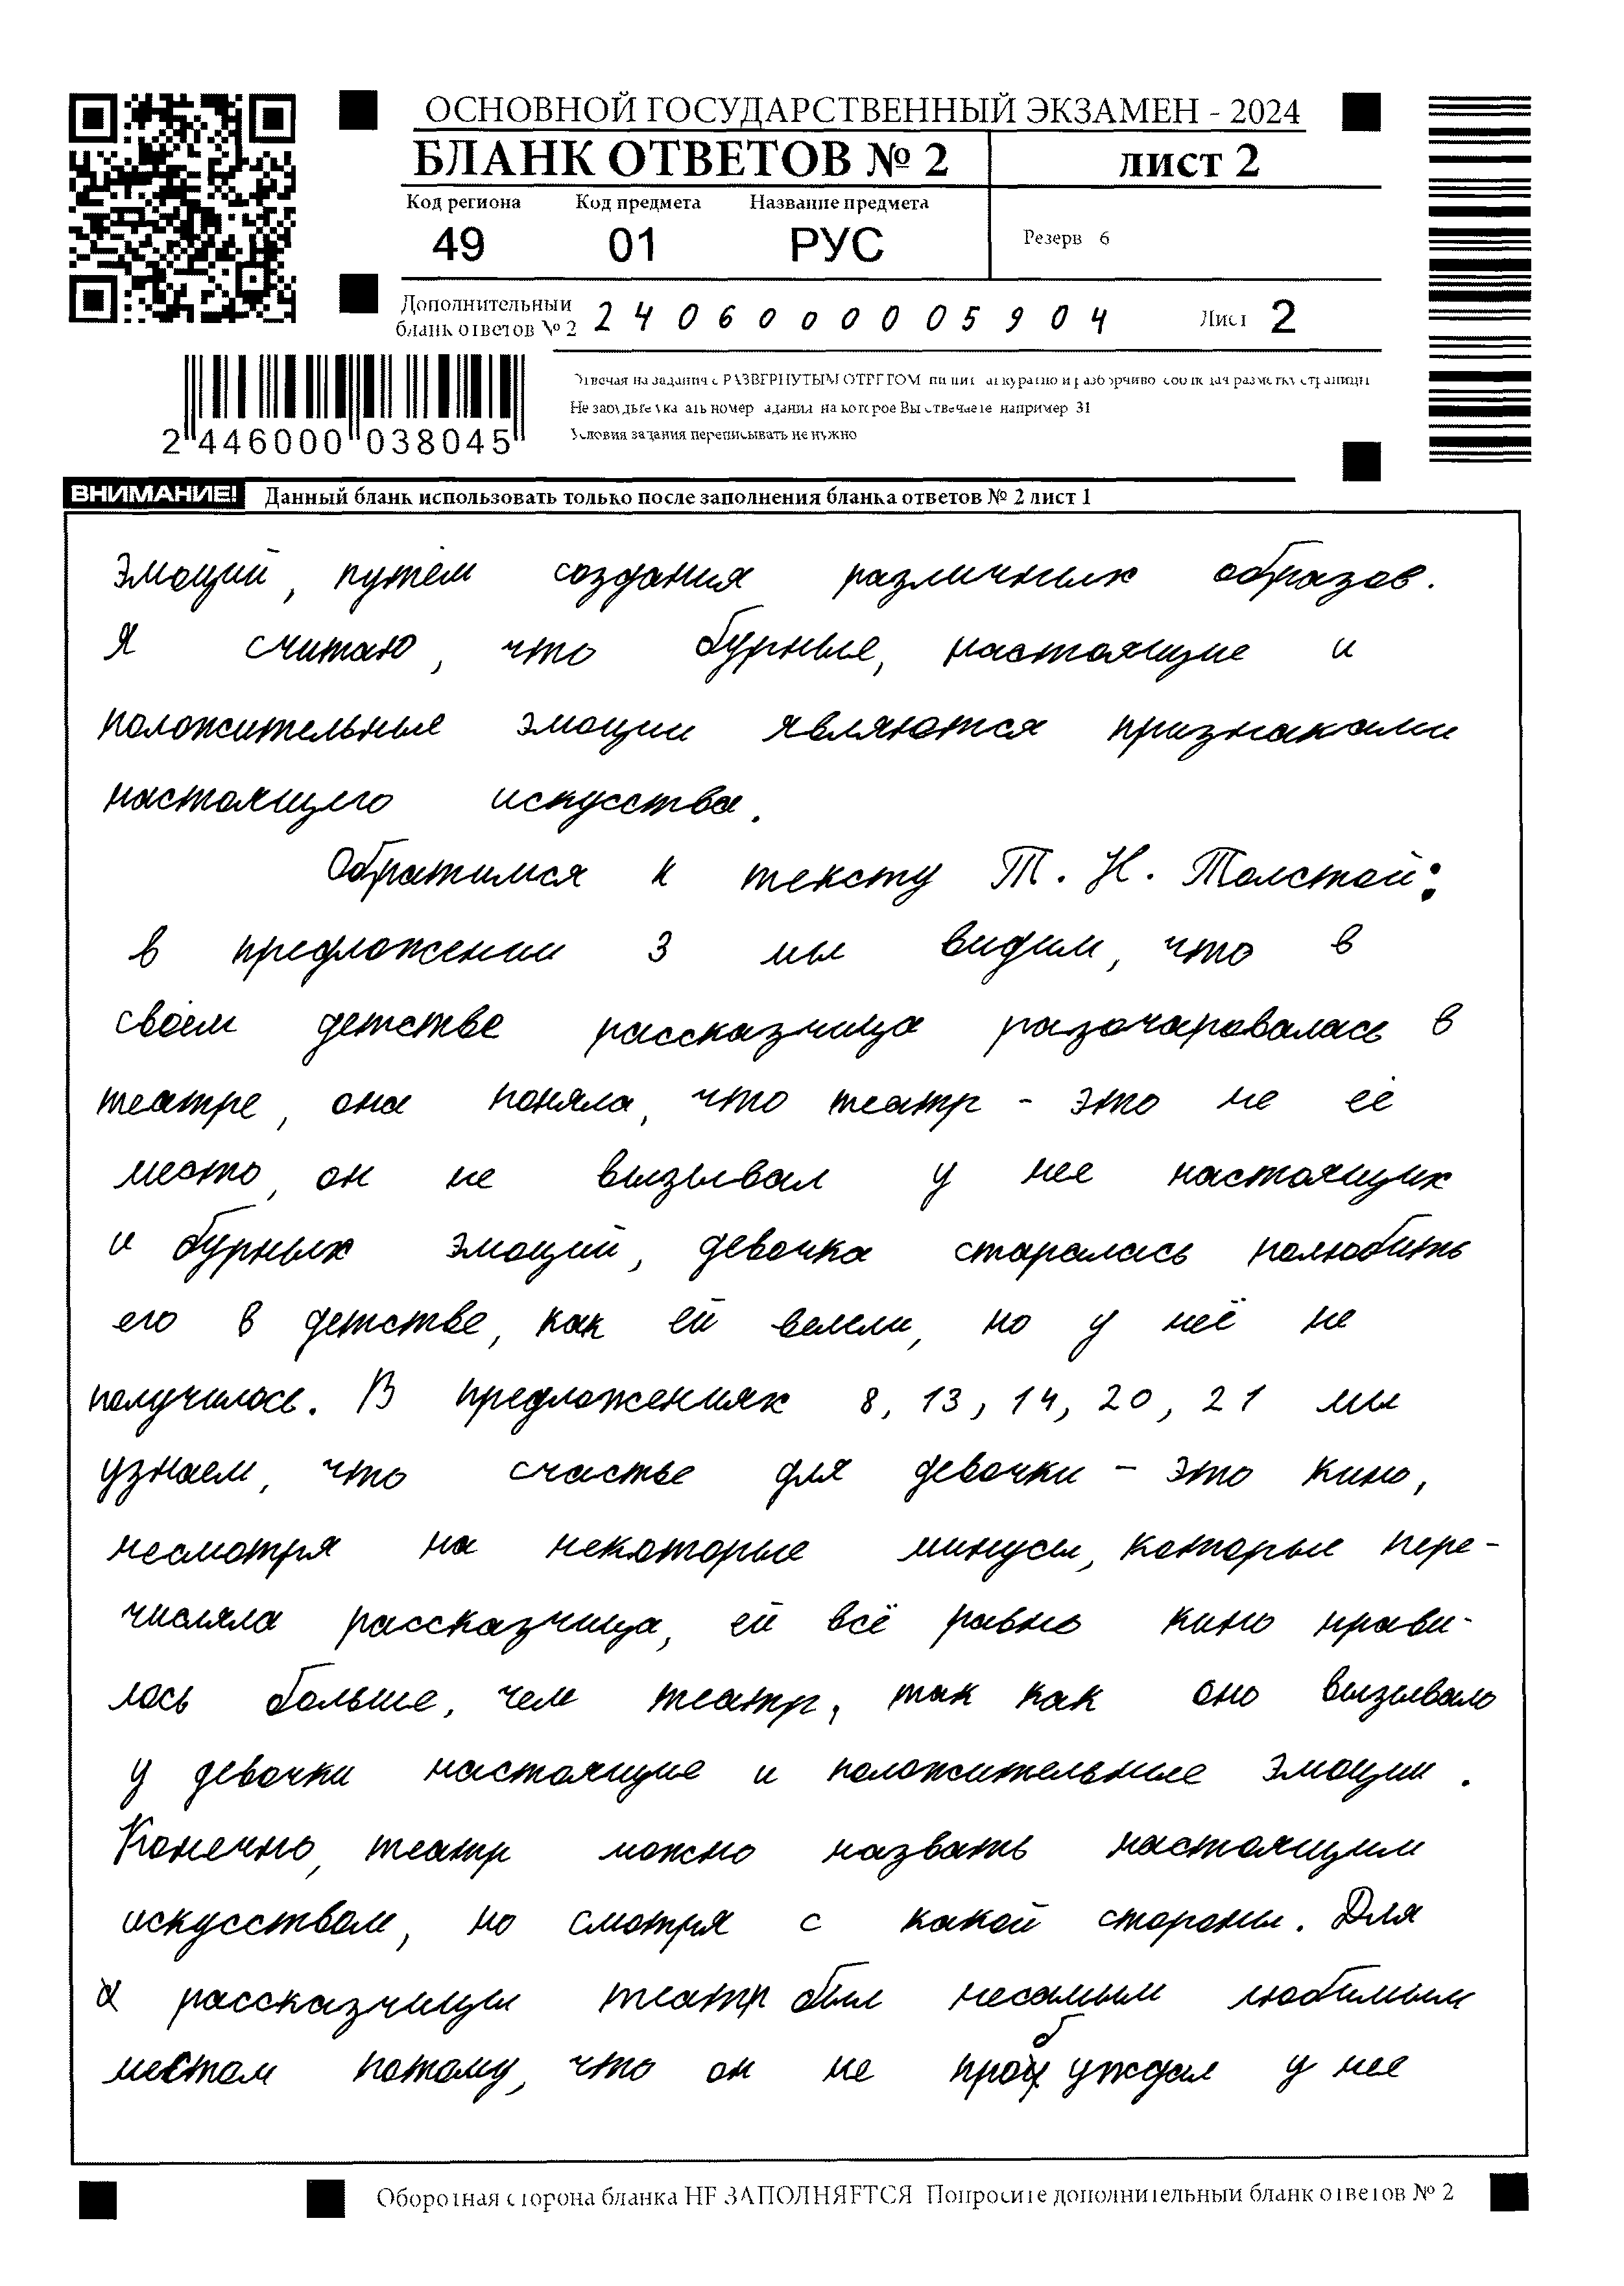 ОСНОВНОЙ ГОСУДАРСТВЕННЫЙ ЭКЗАМЕН - 2024
БЛАНК ОТВЕТОВ № 2 ЛИСТ 2
Код региона Код предмета Название предмета
49 01 РУС Резерв 6
Дополнительный
бланк ответов № 2 2406000005904 Лист 2
Отвечая на задания с РАЗВЕРНУТЫМ ОТВЕТОМ пишите аккуратно и разборчиво соблюдая разметку страницы
Не забудьте указать номер задания на которое Вы отвечаете например 31
Условия задания переписывать не нужно
2 446000 038045
ВНИМАНИЕ! Данный бланк использовать только после заполнения бланка ответов № 2 лист 1
эмоций, путём создания различных образов.
Я считаю, что бурные, настоящие и
положительные эмоции являются признаками
настоящего искусства.
Обратимся к тексту Т. Н. Толстой:
в предложении 3 мы видим, что в
своём детстве рассказчица разочаровалась в
театре, она поняла, что театр - это не её
место, он не вызывал у нее настоящих
и бурных эмоций, девочка старалась полюбить
его в детстве, как ей велели, но у неё не
получилось. В предложениях 8, 13, 14, 20, 21 мы
узнаем, что счастье для девочки - это кино,
несмотря на некоторые минусы, которые пере-
числяла рассказчица, ей всё равно кино нрави-
лось больше, чем театр, так как оно вызывало
у девочки настоящие и положительные эмоции.
Конечно, театр можно назвать настоящим
искусством, но смотря с какой стороны. Для
рассказчицы театр был несамым любимым
местом потому, что он не пробуждал у нее
Оборотная сторона бланка НЕ ЗАПОЛНЯЕТСЯ Попросите дополнительный бланк ответов № 2